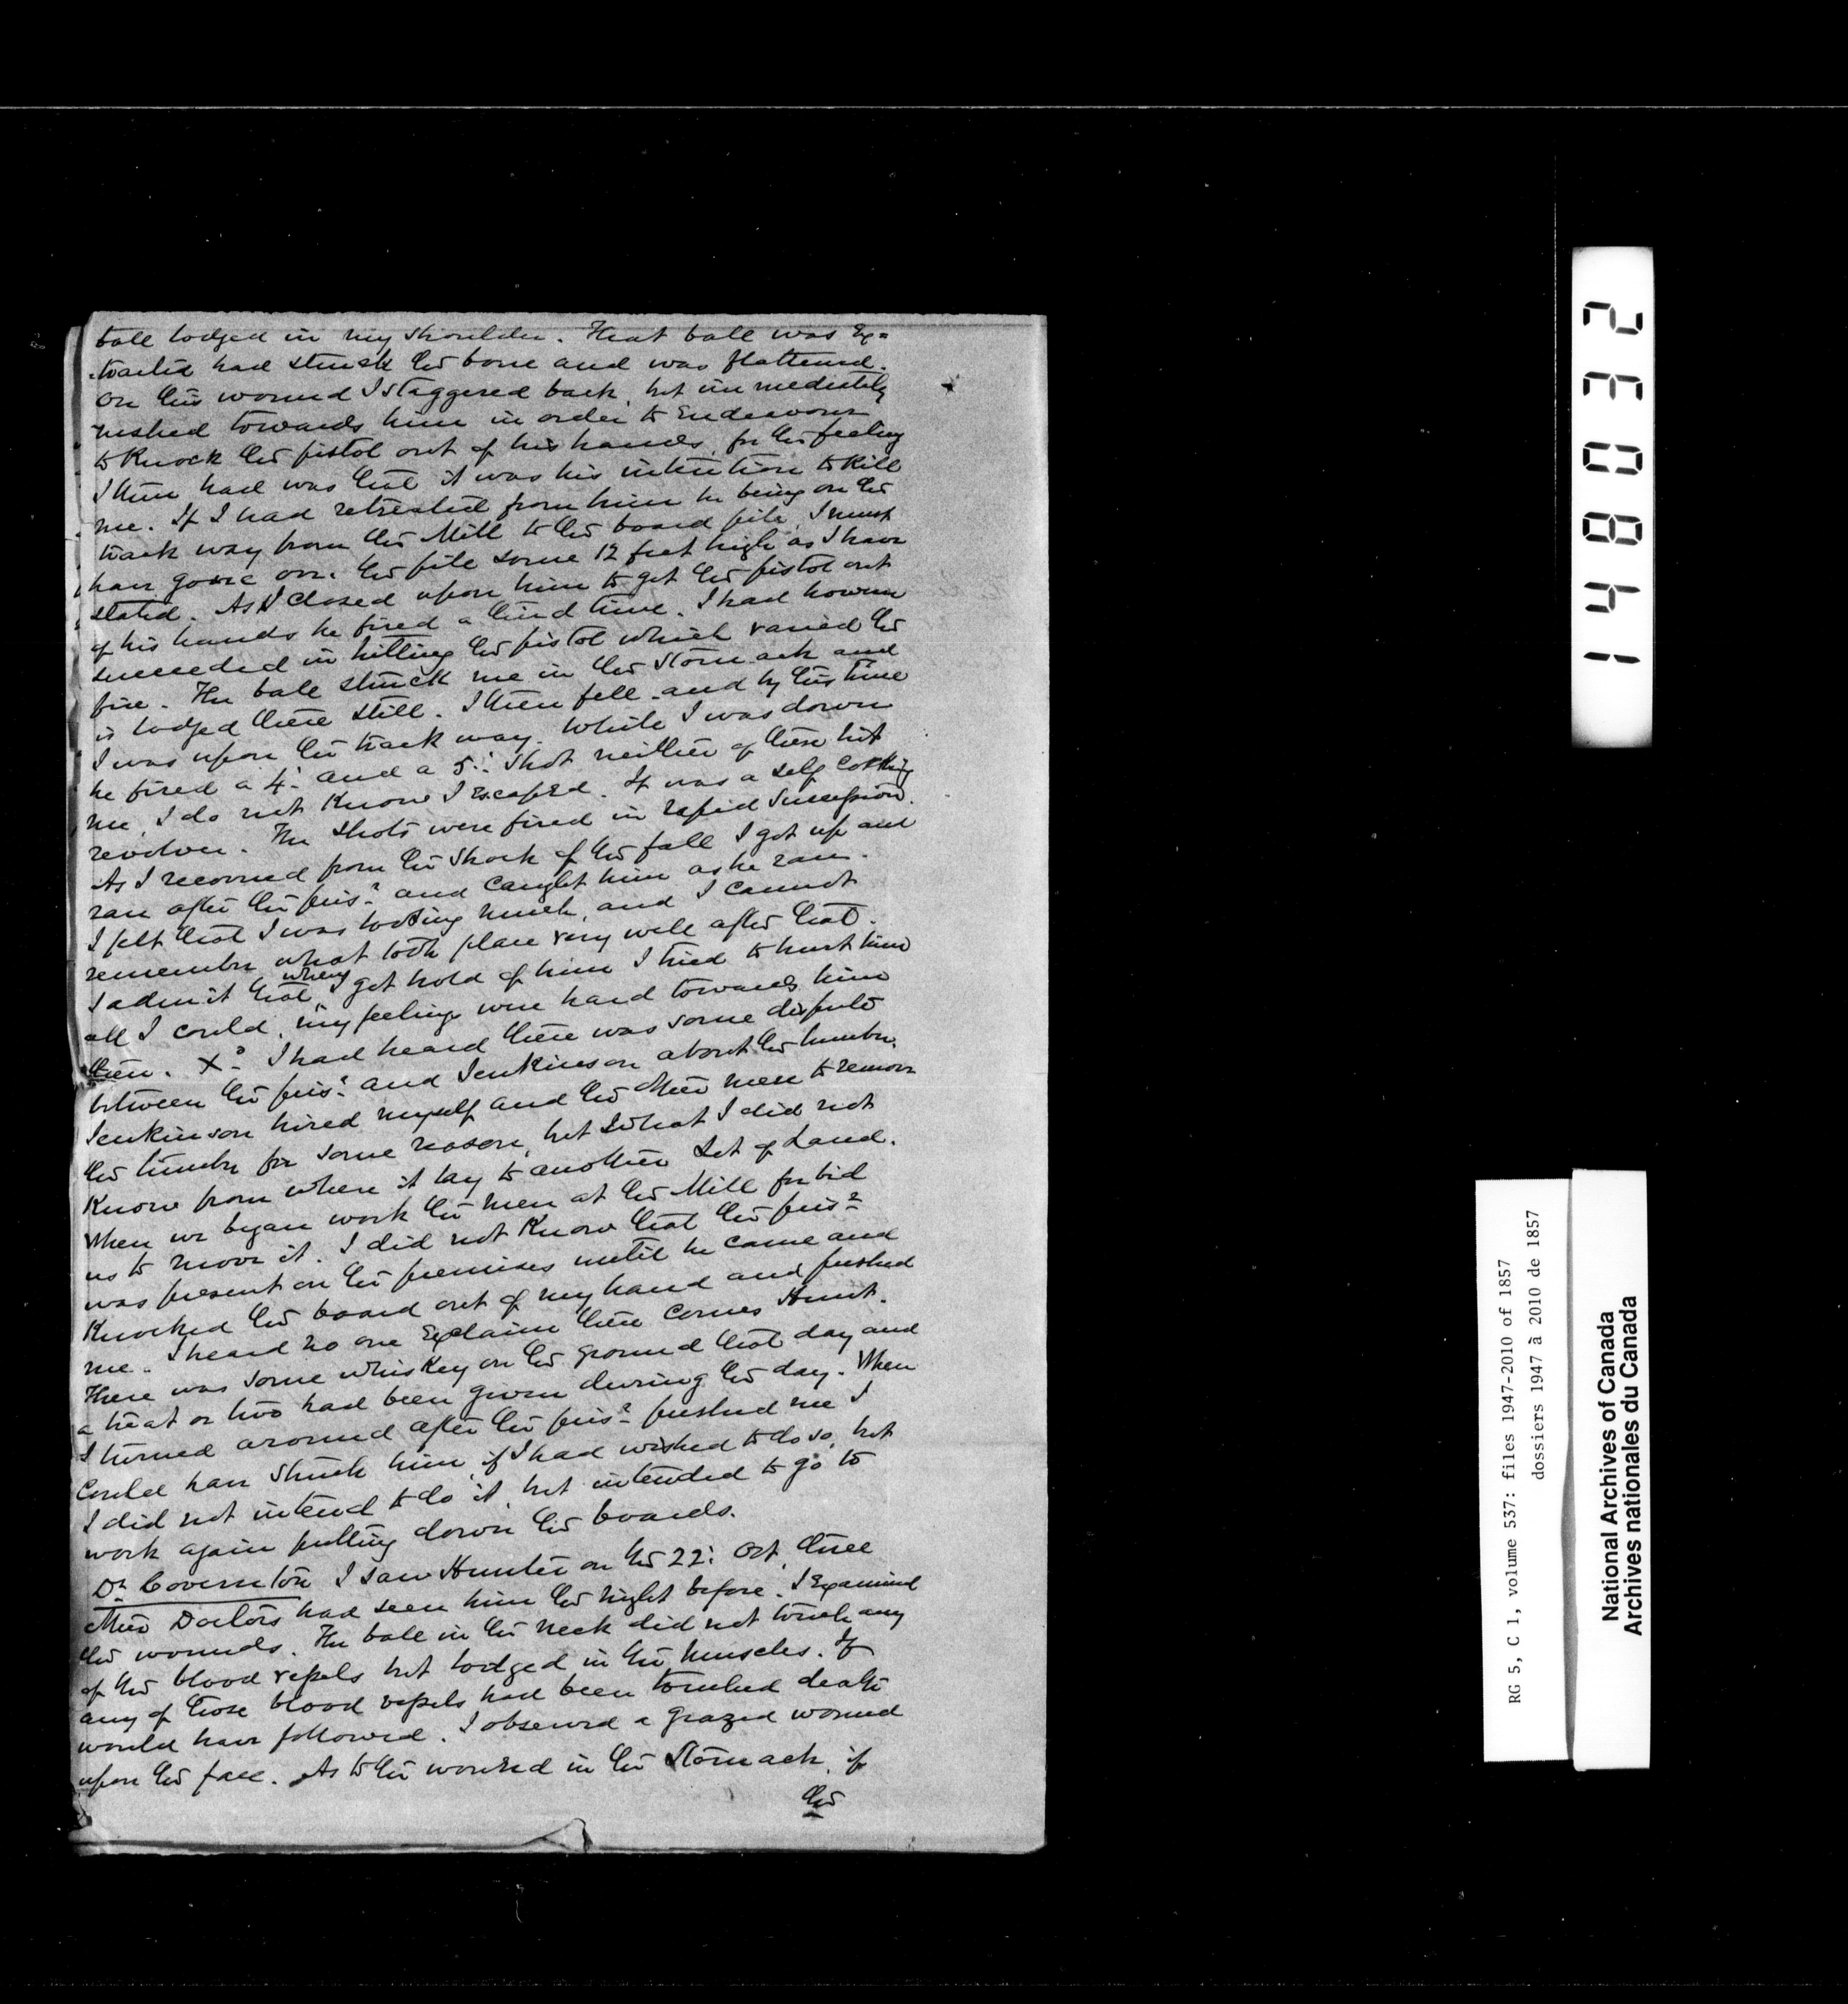 ball lodged in my shoulder. That ball was ex=
tracted had struck the bone and was flattened.
On this wound I staggered back, but immediately
rushed towards him in order to endeavour
to knock the pistol out of his hands, for the feeling
I then had was that it was his intention to kill
me. If I had retreated from him he being on the
track way from the Mill to the board pile, I must
have gone over the pile some 12 feet high as I have
stated. As I closed upon him to get the pistol out
of his hands he fired a third time. I had however
succeeded in hitting the pistol which varied the
fire. The ball struck me in the stomach and
is lodged there still. I then fell and by this time
I was upon the track way. While I was down
he fired a 4th and a 5th shot neither of these hit
me, I do not know I escaped. It was a self cocking
revolver. The shots were fired in rapid succession.
As I recovered from the shock of the fall I got up and
ran after the pris.r and caught him as he ran.
I felt that I was losing much, and I cannot
remember what took place very well after that.
I admit that when I got hold of him I tried to hurt him
all I could, my feelings were hard towards him
then. X.d I had heard there was some dispute
between the pris.r and Jenkinson about the lumber.
Jenkinson hired myself and the other men to remove
the lumber for some reason, but what I did not
know from where it lay to another Lot of Land.
When we began work the men at the Mill forbid
us to move it. I did not know that the pris.r
was present on the premises until he came and
knocked the board out of my hand and pushed
me. I heard no one exclaim there comes Hunt.
There was some whiskey on the ground that day and
a treat or two had been given during the day. When
I turned around after the pris.r pushed me I
could have struck him, if I had wished to do so, but
I did not intend to do it, but intended to go to
work again putting down the boards.
Dr Covernton I saw Hunter on the 22d Oct, three
other Doctors had seen him the night before. I examined
the wounds. The ball in the neck did not touch any
of the blood vessels but lodged in the muscles. If
any of those blood vessels had been touched death
would have followed. I observed a grazed wound
upon the face. As to the wound in the Stomach, if
the
148032
RG 5, C 1, volume 537: files 1947-2010 of 1857
dossiers 1947 à 2010 de 1857
National Archives of Canada
Archives nationales du Canada